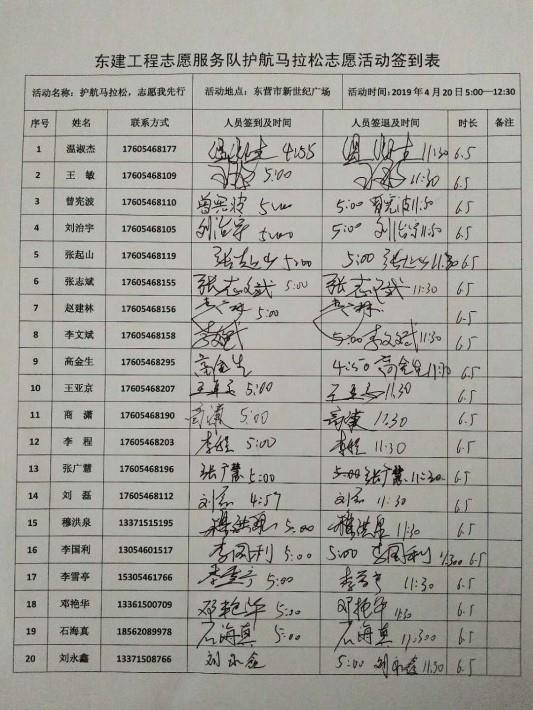 东建工程志愿服务队护航马拉松志愿活动签到表
活动名称：护航马拉松，志愿我先行 活动地点：东营市新世纪广场 活动时间：2019年4月20日5:00—12:30
序号 姓名 联系方式 人员签到及时间 人员签退及时间 时长 备注
1 温淑杰 17605468177 温淑杰 4:55 温淑杰 11:30 6.5
2 王 敏 17605468109 5:00 11:30 6.5
3 曾宪波 17605468110 曾宪波 5:00 5:00 曾宪波 11:30 6.5
4 刘治宇 17605468105 刘治宇 5:00 5:00 刘治宇 11:30 6.5
5 张起山 17605468119 张起山 5:00 5:00 张起山 11:30 6.5
6 张志斌 17605468155 张志斌 5:00 张志斌 11:30 6.5
7 赵建林 17605468156 5:00 6.5
8 李文斌 17605468158 李文斌 5:00 李文斌 11:30 6.5
9 高金生 17605468295 高金生 4:50 高金生 11:30 6.5
10 王亚京 17605468207 王亚京 5:00 王亚京 11:30 6.5
11 商 潇 17605468190 商潇 5:00 商潇 11:30 6.5
12 李 程 17605468203 李程 5:00 李程 11:30 6.5
13 张广慧 17605468196 张广慧 5:00 5:00 张广慧 11:30 6.5
14 刘 磊 17605468112 刘磊 4:57 刘磊 11:30 6.5
15 穆洪泉 13371515195 穆洪泉 5:00 穆洪泉 11:30 6.5
16 李国利 13054601517 李国利 5:00 5:00 李国利 11:300 6.5
17 李雪亭 15305461766 李雪亭 5:00 李雪亭 11:30 6.5
18 邓艳华 13361500709 邓艳华 5:00 邓艳华 11:30 6.5
19 石海真 18562089978 石海真 5:00 石海真 11:300 6.5
20 刘永鑫 13371508766 刘永鑫 5:00 刘永鑫 11:30 6.5